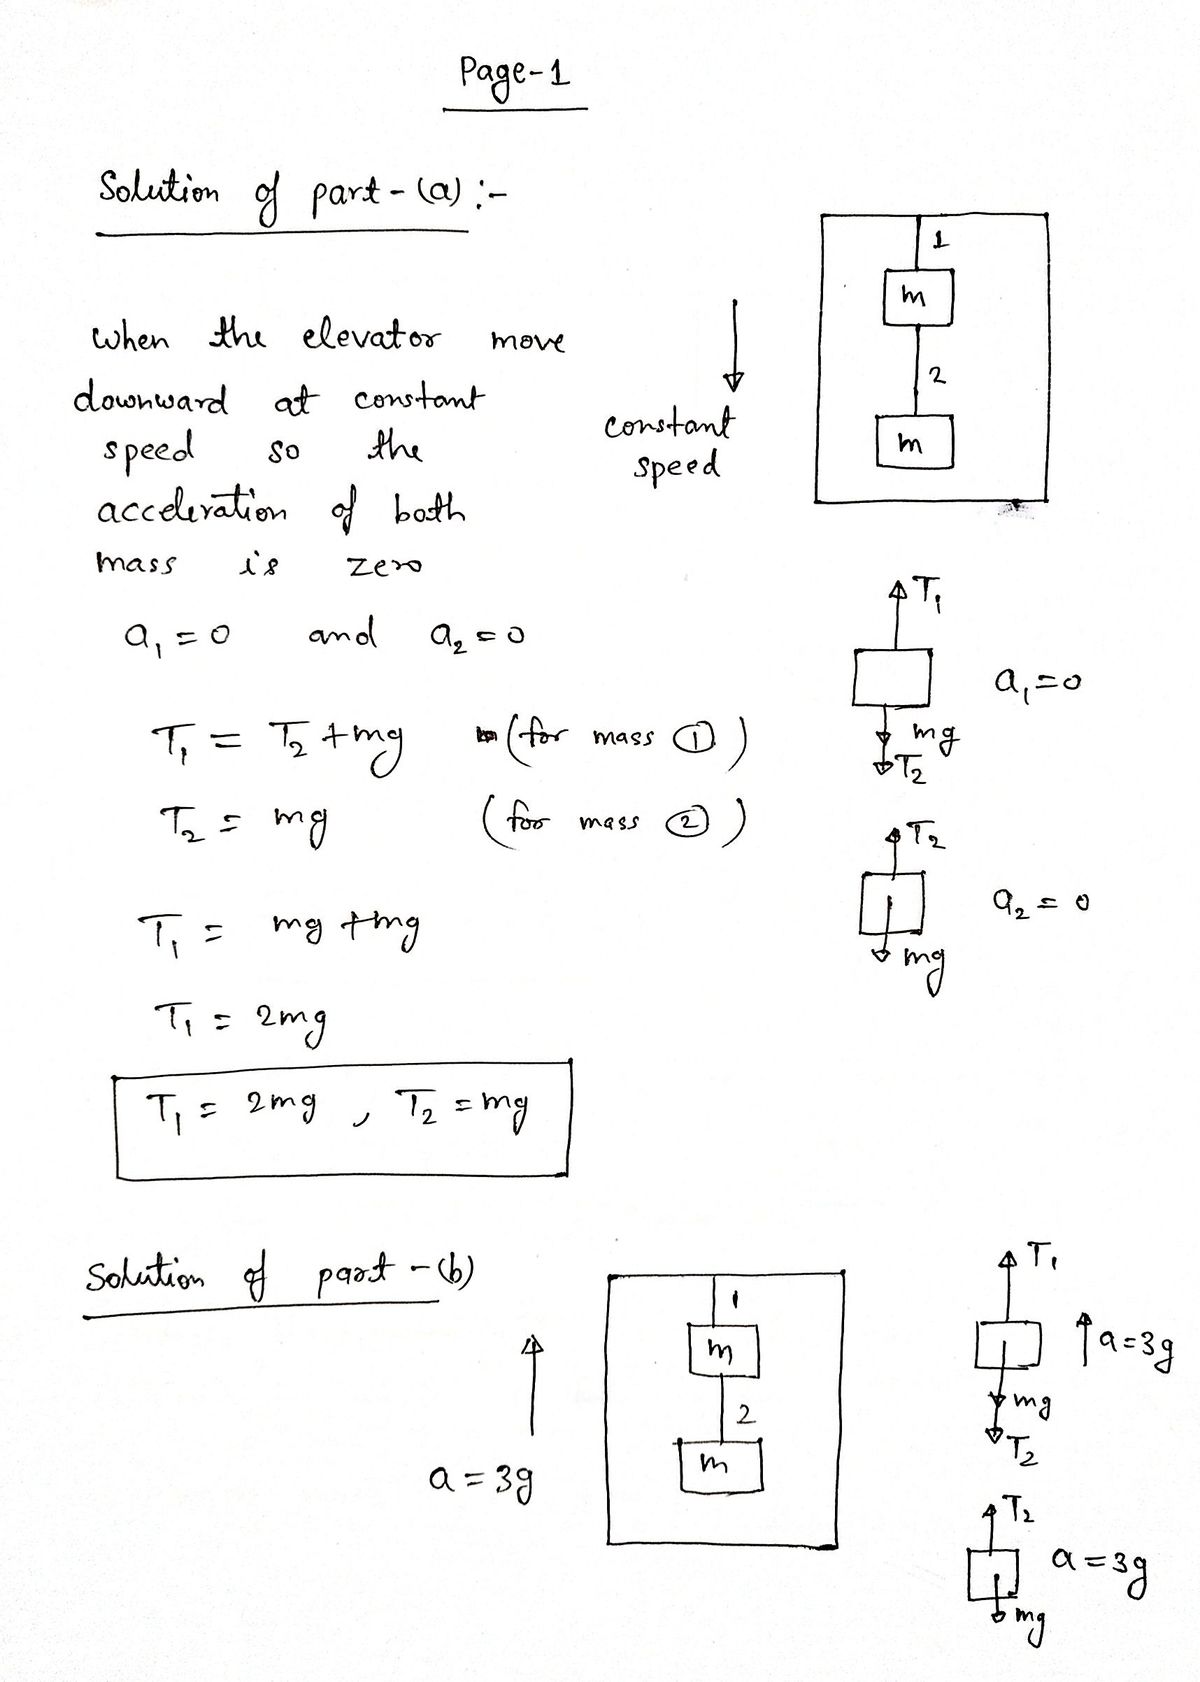 Page-1
Solution of part-(a) :-
1
m
2
m
constant
speed
when the elevator move
downward at constant
speed so the
acceleration of both
mass is zero
a₁ = 0 and a₂ = 0
T₁
a₁ = 0
mg
T₂
T₁ = T₂ + mg (for mass ①)
T₂ = mg (for mass ②)
T₂
a₂ = 0
mg
T₁ = mg + mg
T₁ = 2mg
T₁ = 2mg , T₂ = mg
Solution of part-(b)
a = 3g
1
m
2
m
T₁
a = 3g
mg
T₂
T₂
a = 3g
mg